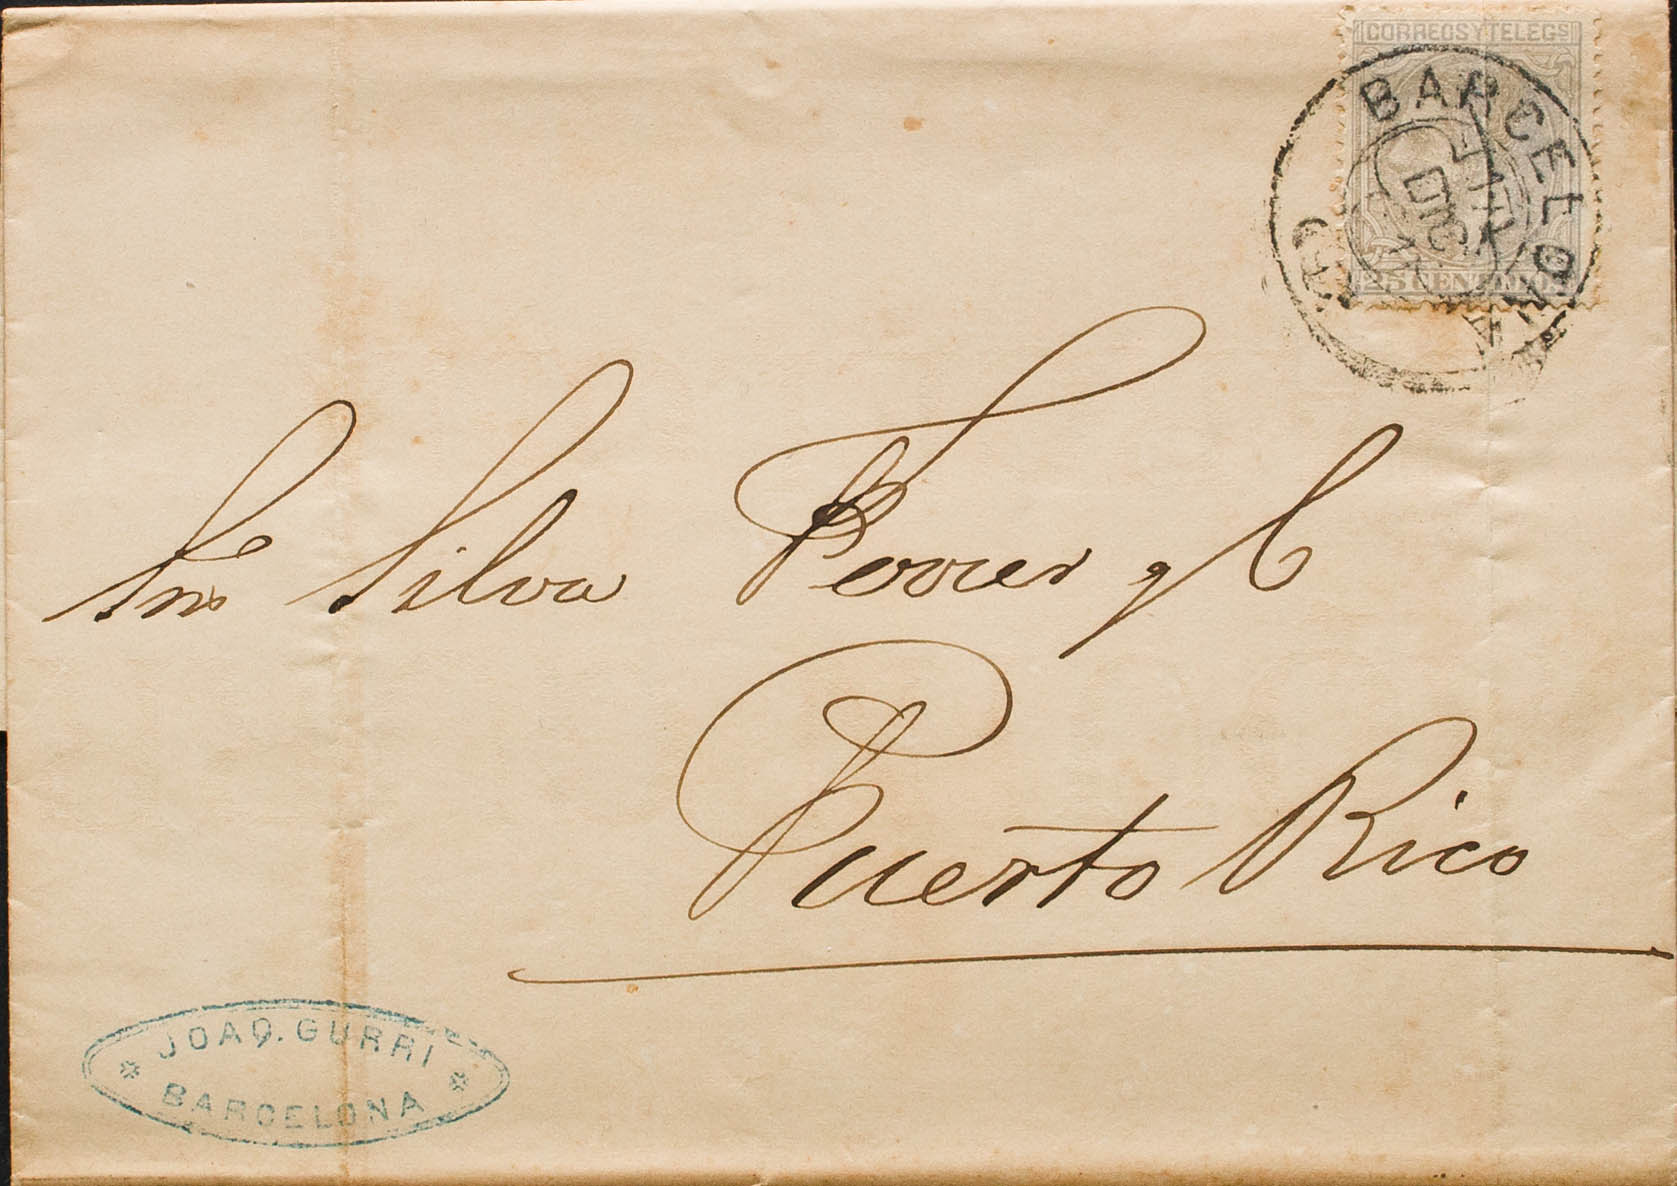 CORREOS Y TELEGS
BARCELONA
DIC
25 CENTIMOS
Sres Silva Ferrer y C
Puerto Rico
JOAQ. GURRI
BARCELONA